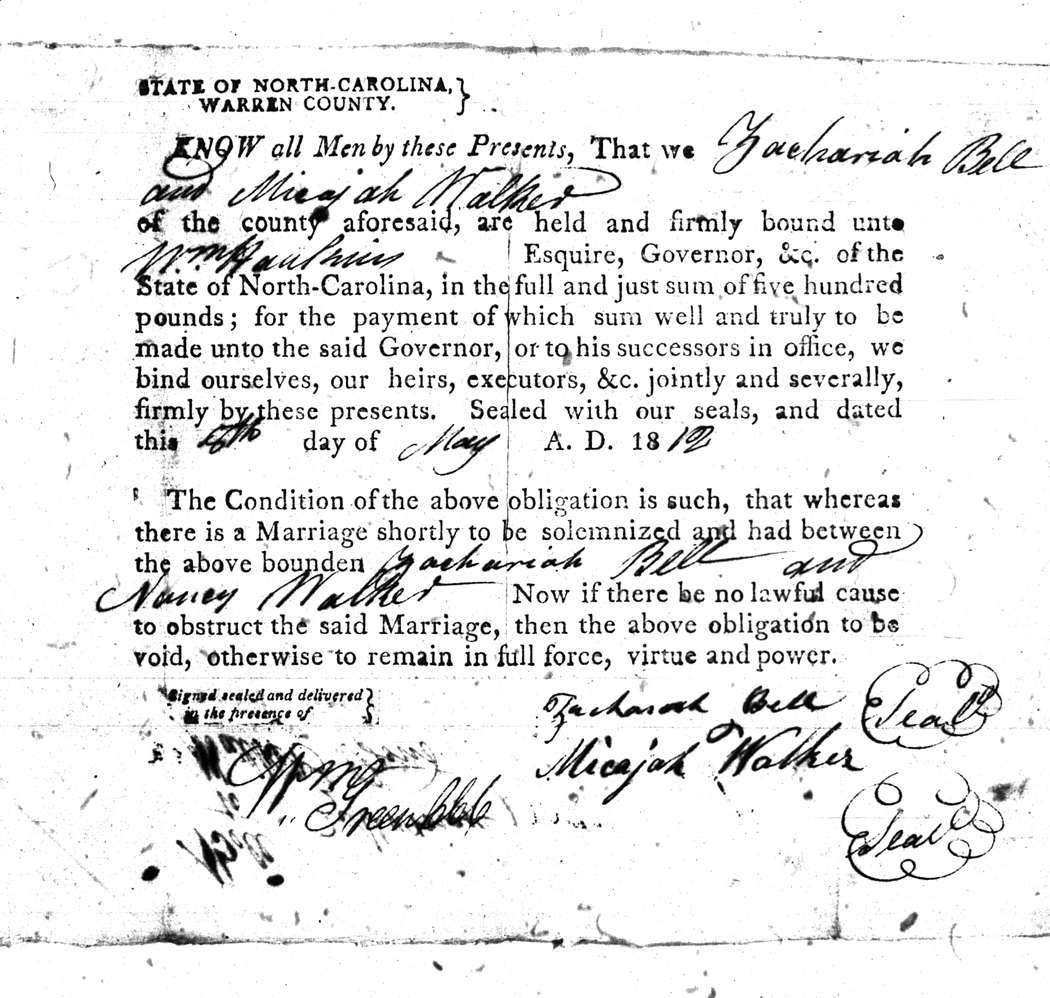 STATE OF NORTH-CAROLINA,
WARREN COUNTY.
KNOW all Men by these Presents, That we Zachariah Bell
and Micajah Walker
of the county aforesaid, are held and firmly bound unto
Wm Hawkins Esquire, Governor, &c. of the
State of North-Carolina, in the full and just sum of five hundred
pounds; for the payment of which sum well and truly to be
made unto the said Governor, or to his successors in office, we
bind ourselves, our heirs, executors, &c. jointly and severally,
firmly by these presents. Sealed with our seals, and dated
this day of May A. D. 1812
The Condition of the above obligation is such, that whereas
there is a Marriage shortly to be solemnized and had between
the above bounden Zachariah Bell and
Nancy Walker Now if there be no lawful cause
to obstruct the said Marriage, then the above obligation to be
void, otherwise to remain in full force, virtue and power.
Signed sealed and delivered
in the presence of
Zachariah Bell Seal
Micajah Walker
Seal